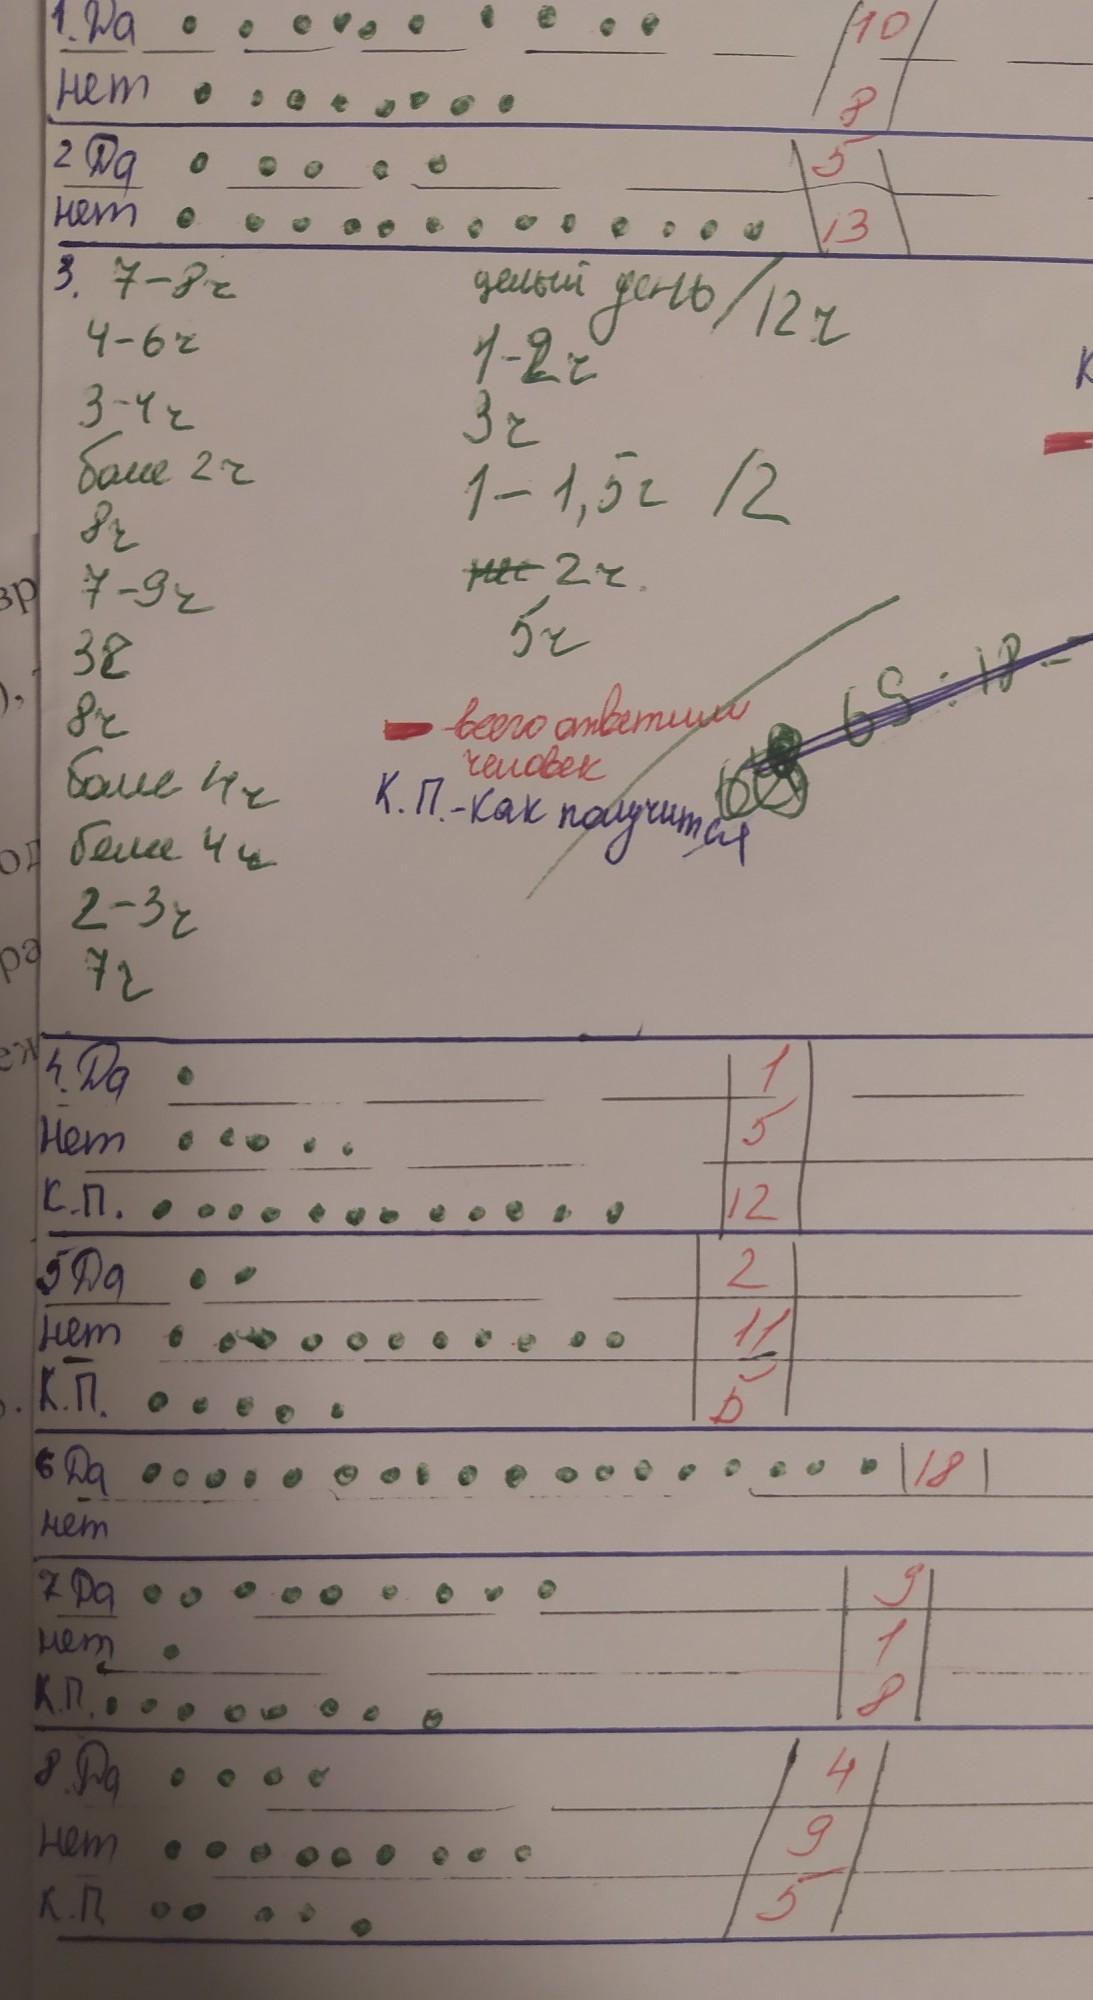 1. Да 10
нет 8
2 Да 5
нет 13
3. 7-8ч
4-6ч
3-4ч
боле 2ч
8ч
7-9ч
3ч
8ч
боле 4ч
боле 4ч
2-3ч
7ч
целый день/12ч
1-2ч
3ч
1-1,5ч /2
2ч.
5ч
- всего ответили
человек
К.П.-Как получится
69:18=
4. Да 1
Нет 5
К.П. 12
5 Да 2
нет 11
К.П. 5
6 Да 18
нет
7 Да 9
нет 1
К.П. 8
8. Да 4
нет 9
К.П 5